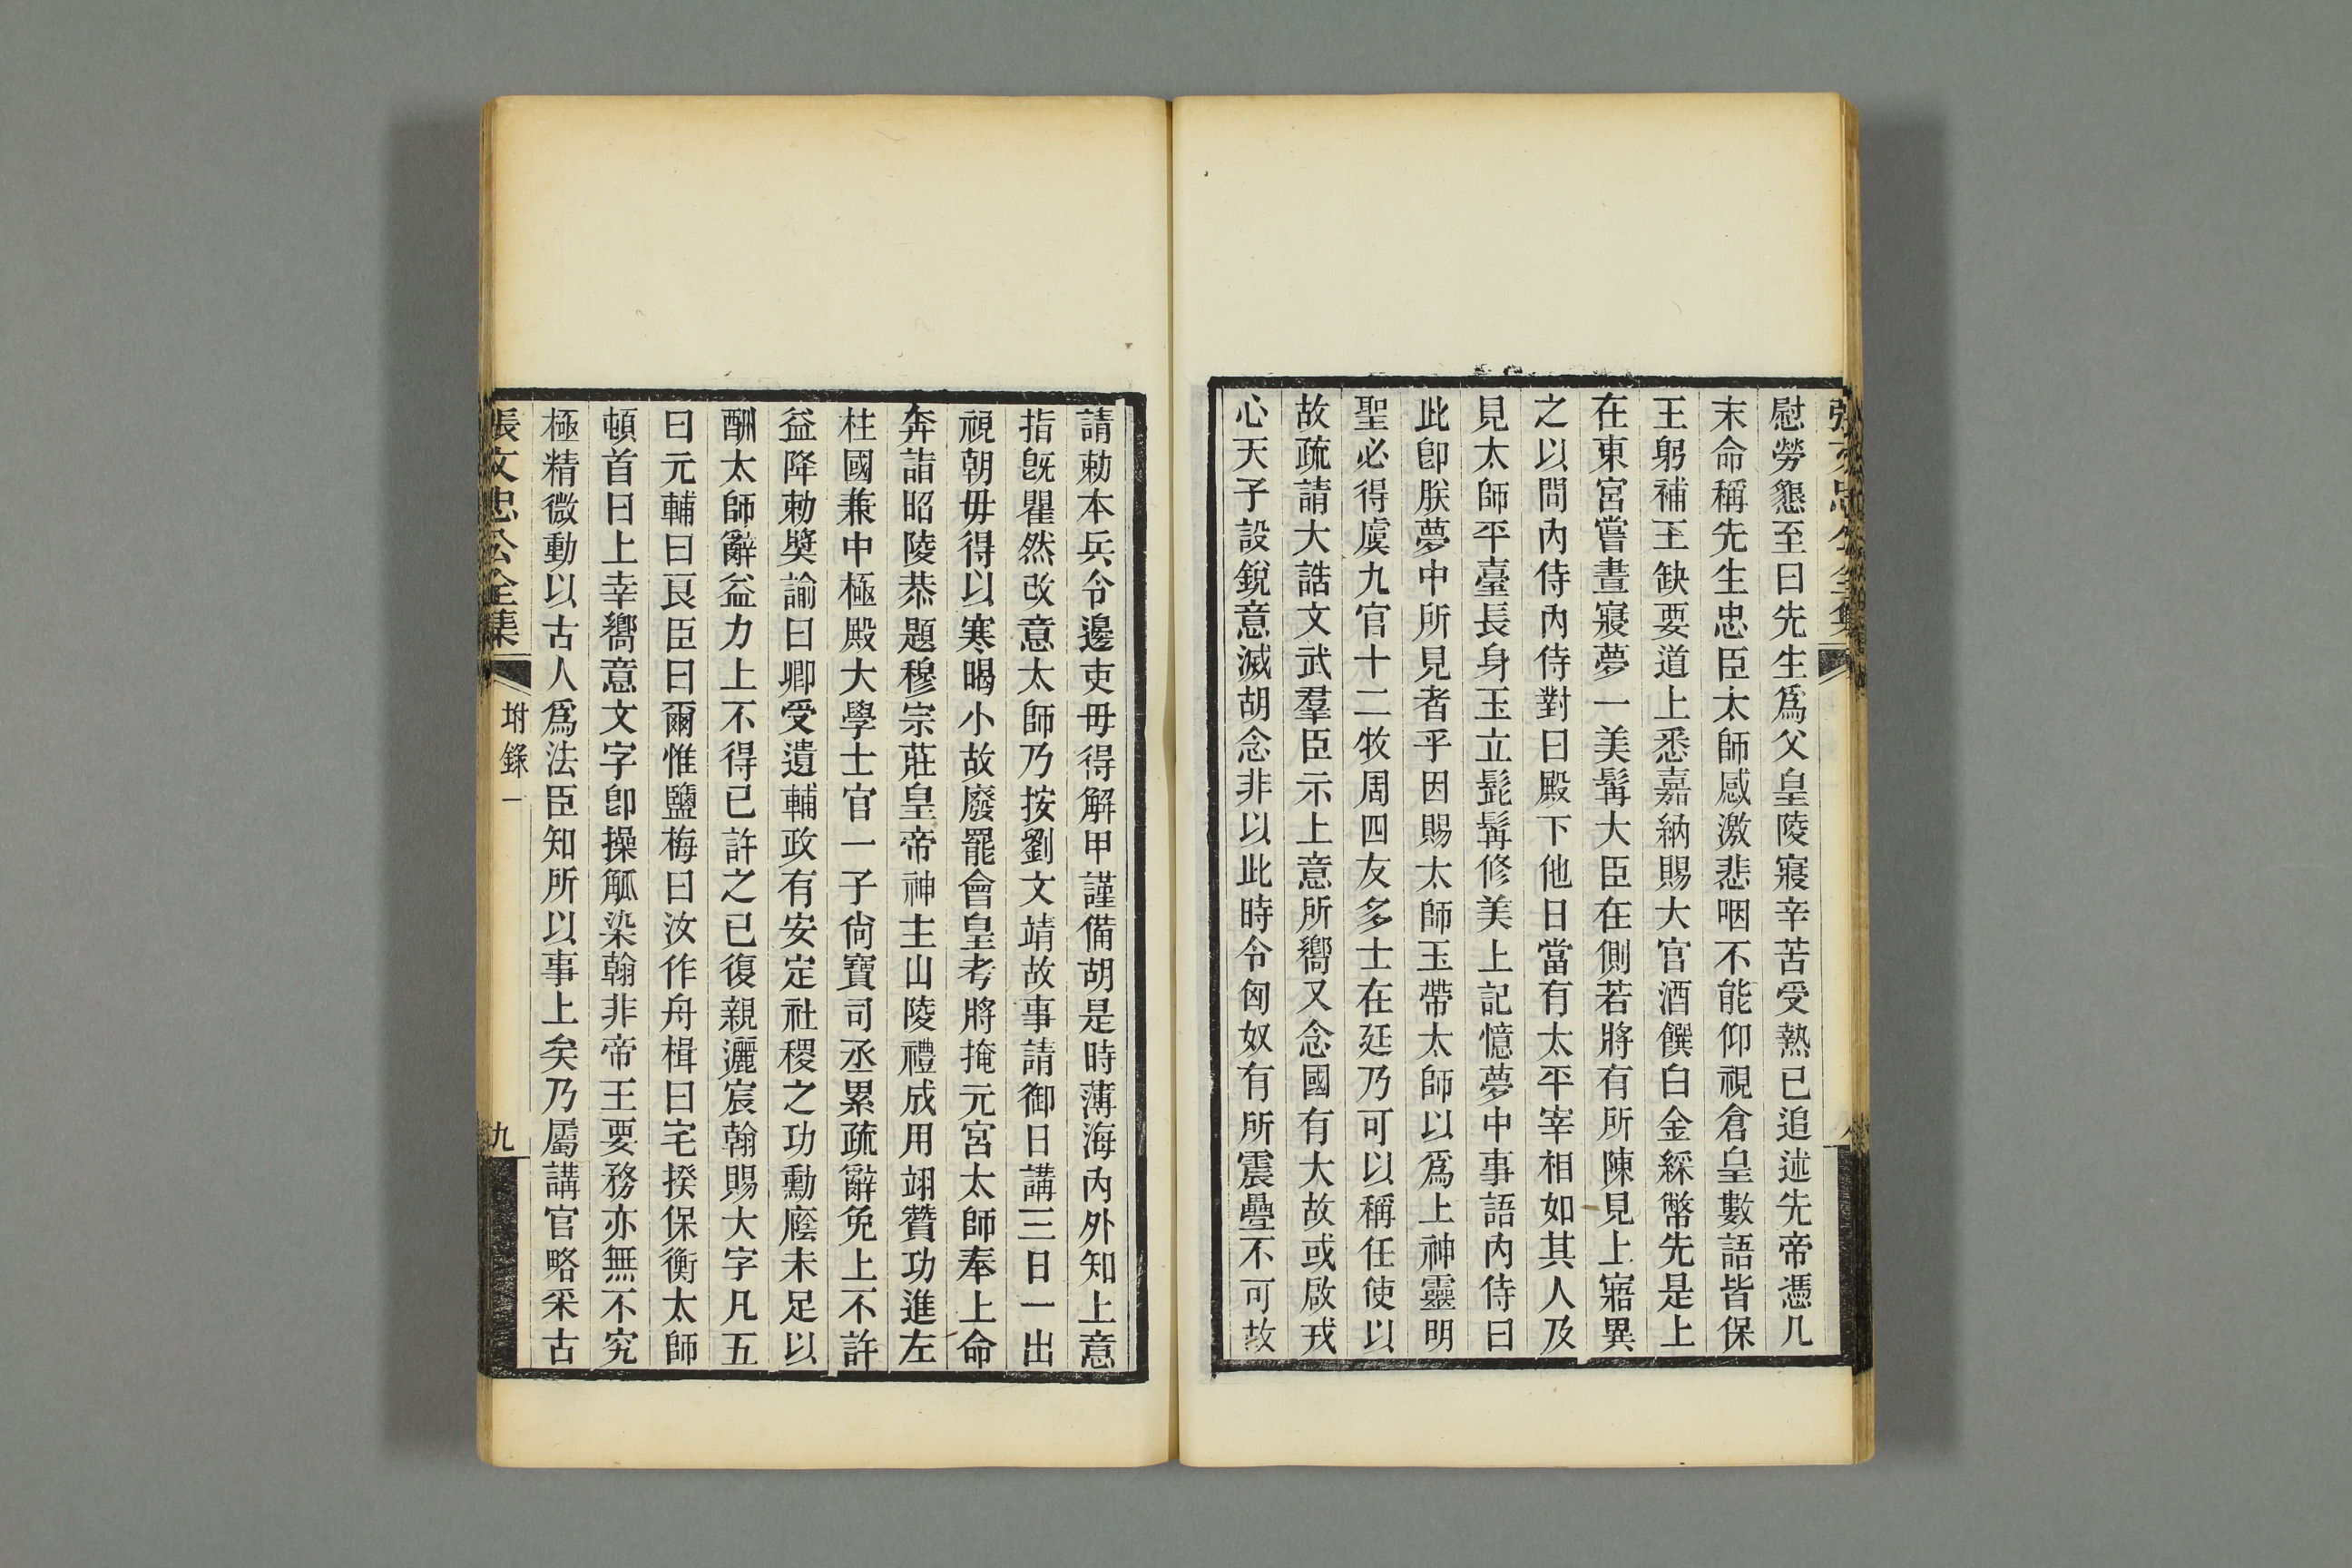 慰勞懇至曰先生爲父皇陵寢辛苦受熱已追述先帝憑几
末命稱先生忠臣太師感激悲咽不能仰視倉皇數語皆保
王躬補王缺要道上悉嘉納賜大官酒饌白金綵幣先是上
在東宮嘗晝寢夢一美髯大臣在側若將有所陳見上寤異
之以問內侍內侍對曰殿下他日當有太平宰相如其人及
見太師平臺長身玉立髭髯修美上記憶夢中事語內侍曰
此卽朕夢中所見者乎因賜太師玉帶太師以爲上神靈明
聖必得虞九官十二牧周四友多士在廷乃可以稱任使以
故疏請大誥文武羣臣示上意所嚮又念國有大故或啟戎
心天子設銳意滅胡念非以此時令匈奴有所震疊不可故
請勅本兵令邊吏毋得解甲謹備胡是時薄海內外知上意
指旣瞿然改意太師乃按劉文靖故事請御日講三日一出
視朝毋得以寒暍小故廢罷會皇考將掩元宮太師奉上命
奔詣昭陵恭題穆宗莊皇帝神主山陵禮成用翊贊功進左
柱國兼中極殿大學士官一子尙寶司丞累疏辭免上不許
益降勅奬諭曰卿受遺輔政有安定社稷之功勳廕未足以
酬太師辭益力上不得已許之已復親灑宸翰賜大字凡五
曰元輔曰良臣曰爾惟鹽梅曰汝作舟楫曰宅揆保衡太師
頓首曰上幸嚮意文字卽操觚染翰非帝王要務亦無不究
極精微動以古人爲法臣知所以事上矣乃屬講官略采古
張文忠公全集
坿錄一
九